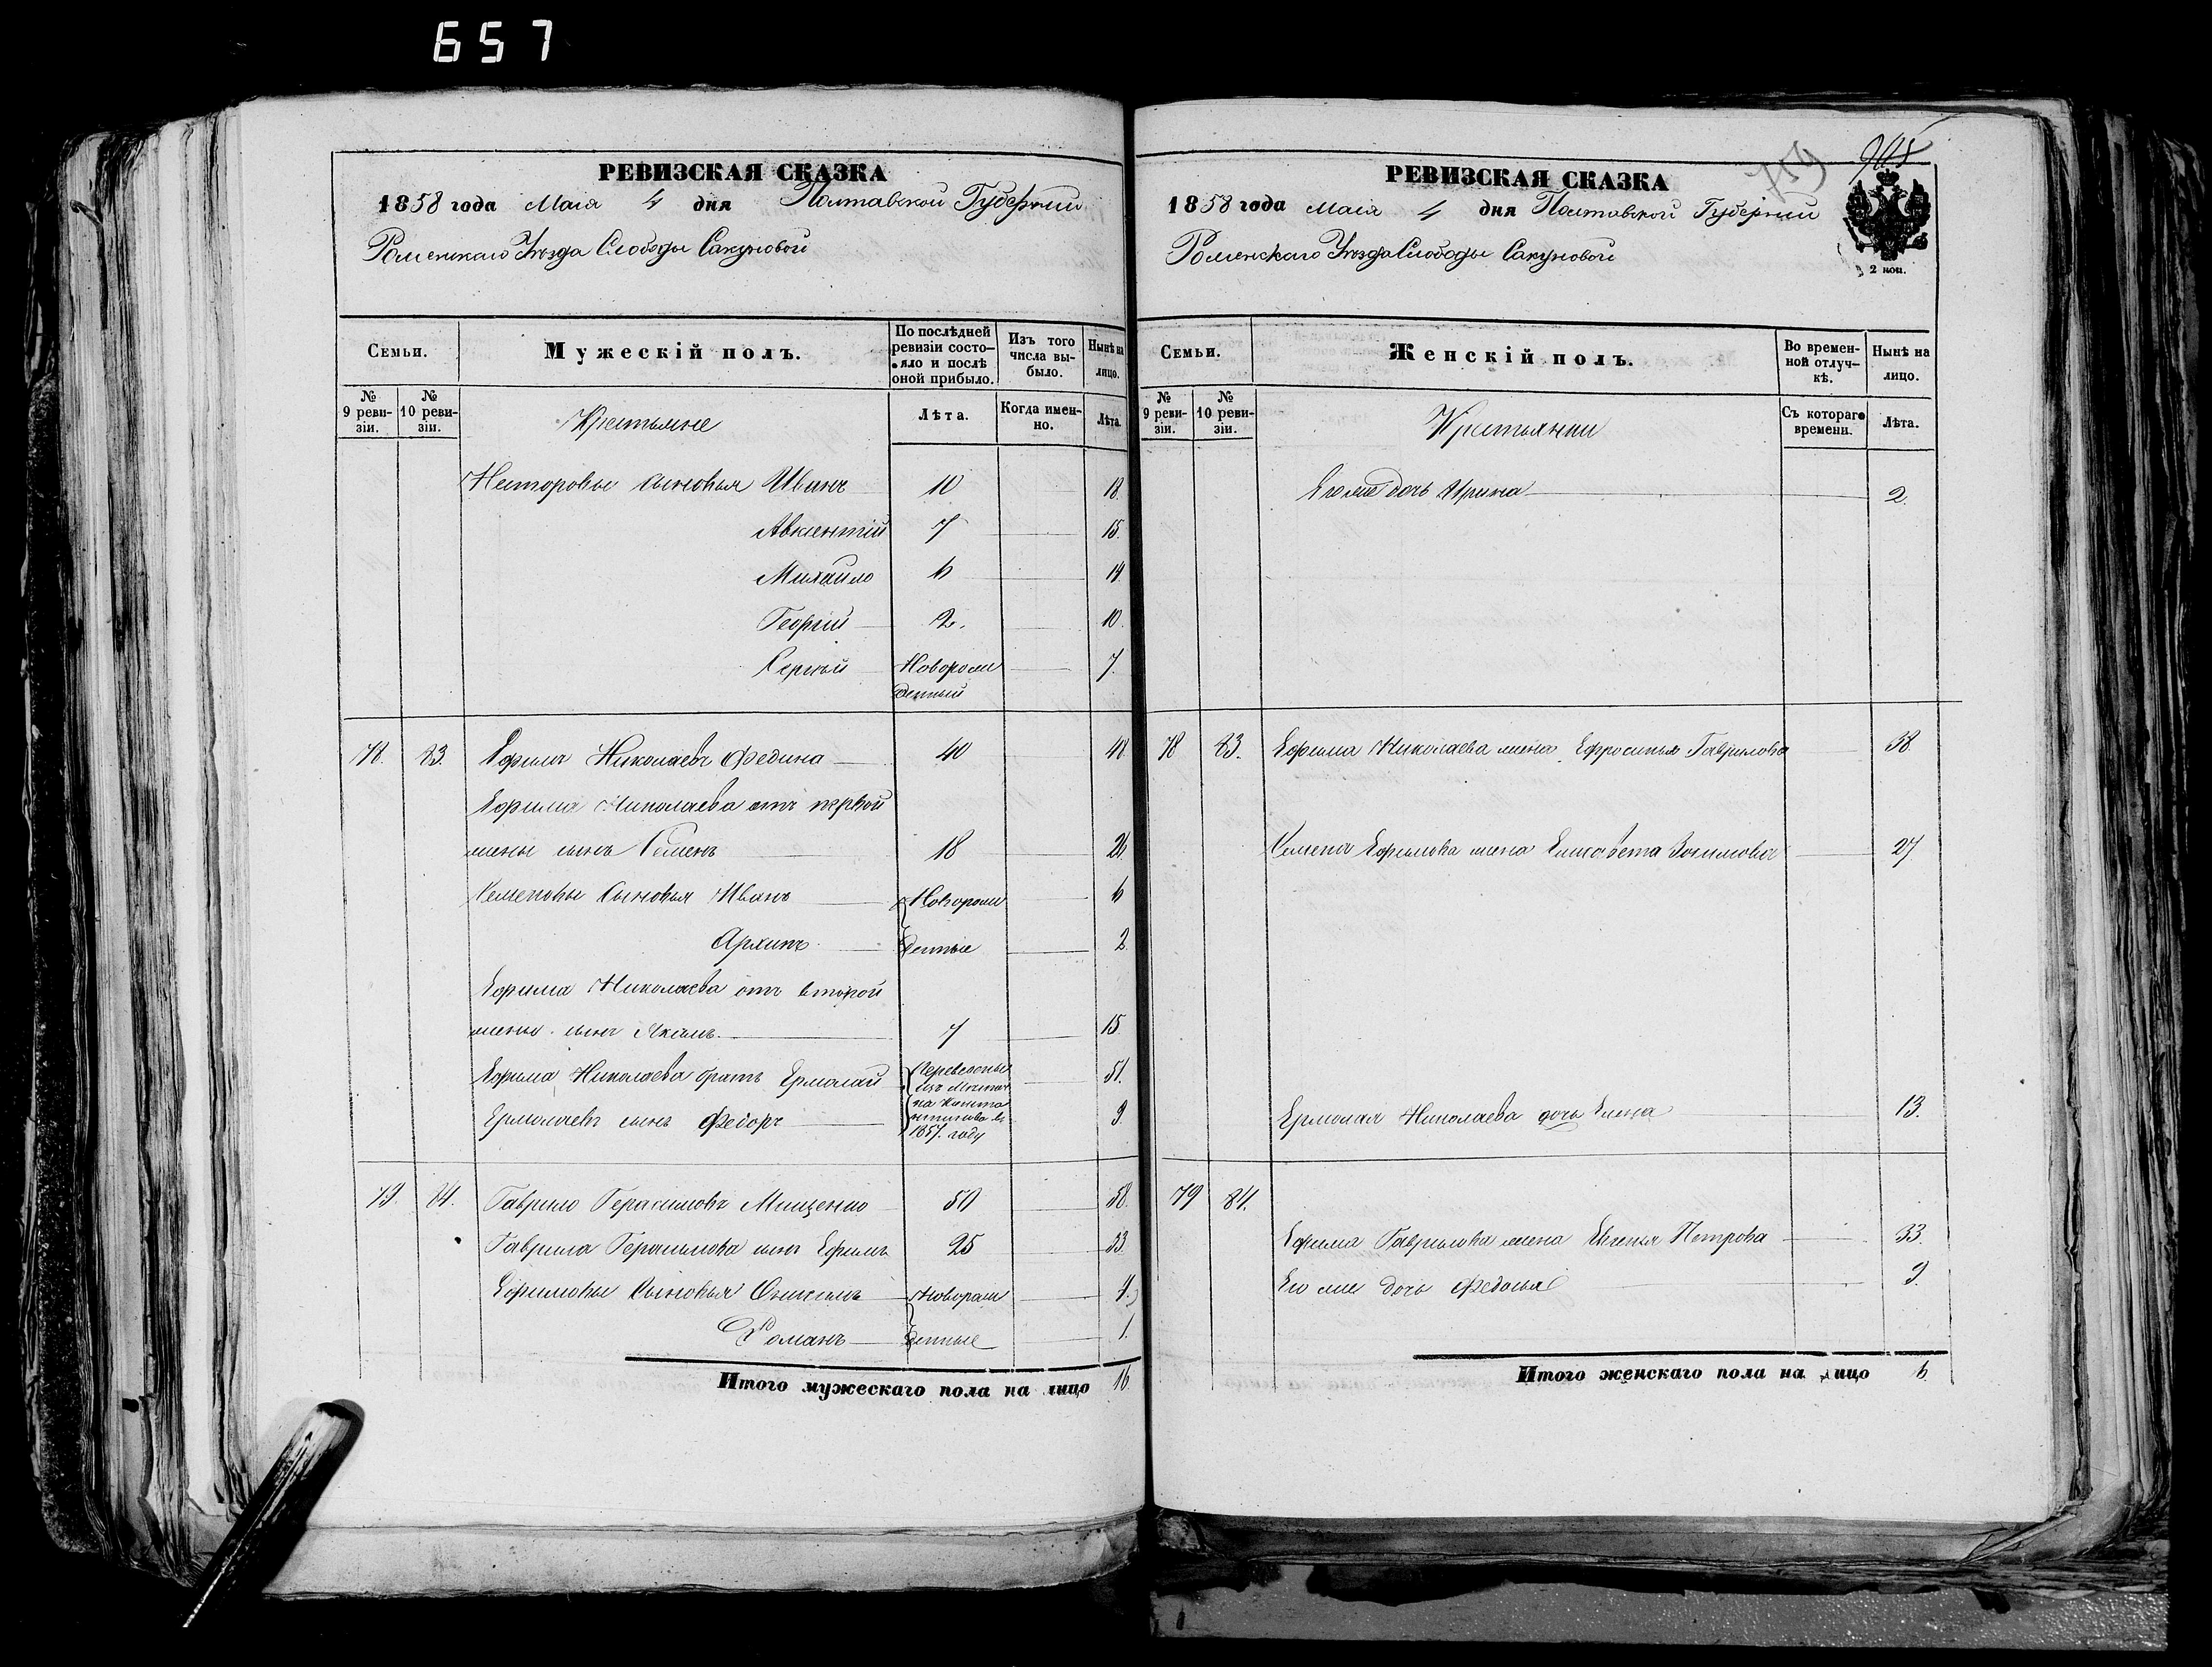 657
РЕВИЗСКАЯ СКАЗКА
1858 года Маія 4 дня Полтавской Губерніи
Роменскаго Уѣзда Слободы Сакуновой
Семьи.
Мужескій полъ.
По послѣдней ревизіи состояло и послѣ оной прибыло.
Изъ того числа выбыло.
Нынѣ на лицо.
№ 9 ревизіи.
№ 10 ревизіи.
Крестьяне
Лѣта.
Когда именно.
Лѣта.
Несторовы сыновья Иванъ 10 18.
Авксентій 7 15.
Михайло 6 14
Георгій 2. 10.
Сергѣй Новорожденный 7.
78. 83. Ефимъ Николаевъ Федина 40 48
Ефима Николаева отъ первой
жены сынъ Семенъ 18 26
Семеновы сыновья Иванъ Новорож 6
Архипъ денные 2
Ефима Николаева отъ второй
жены сынъ Якимъ 7 15
Ефима Николаева братъ Ермолай 51.
Ермолаевъ сынъ Федоръ 9.
1857. году
79. 84. Гаврило Герасимовъ Мищенко 50 58.
Гаврила Герасимова сынъ Ефимъ 25 33
Ефимовы сыновья Онисимъ Новорож 4.
Романъ денные 1.
Итого мужескаго пола на лицо 16
759
РЕВИЗСКАЯ СКАЗКА
1858 года Маія 4 дня Полтавской Губерніи
Роменскаго Уѣзда Слободы Сакуновой
2 коп.
Семьи.
Женскій полъ.
Во временной отлучкѣ.
Нынѣ на лицо.
№ 9 ревизіи.
№ 10 ревизіи.
Крестьянки
Съ котораго времени.
Лѣта.
Его же дочь Ирина 2
78 83. Ефима Николаева жена Ефросинья Гаврилова 38
Семена Ефимова жена Елисавета 27
Ермолая Николаева дочь Елена 13.
79 84.
Ефима Гаврилова жена Евгенья Петрова 33
Его же дочь Федосья 9.
Итого женскаго пола на лицо 6.